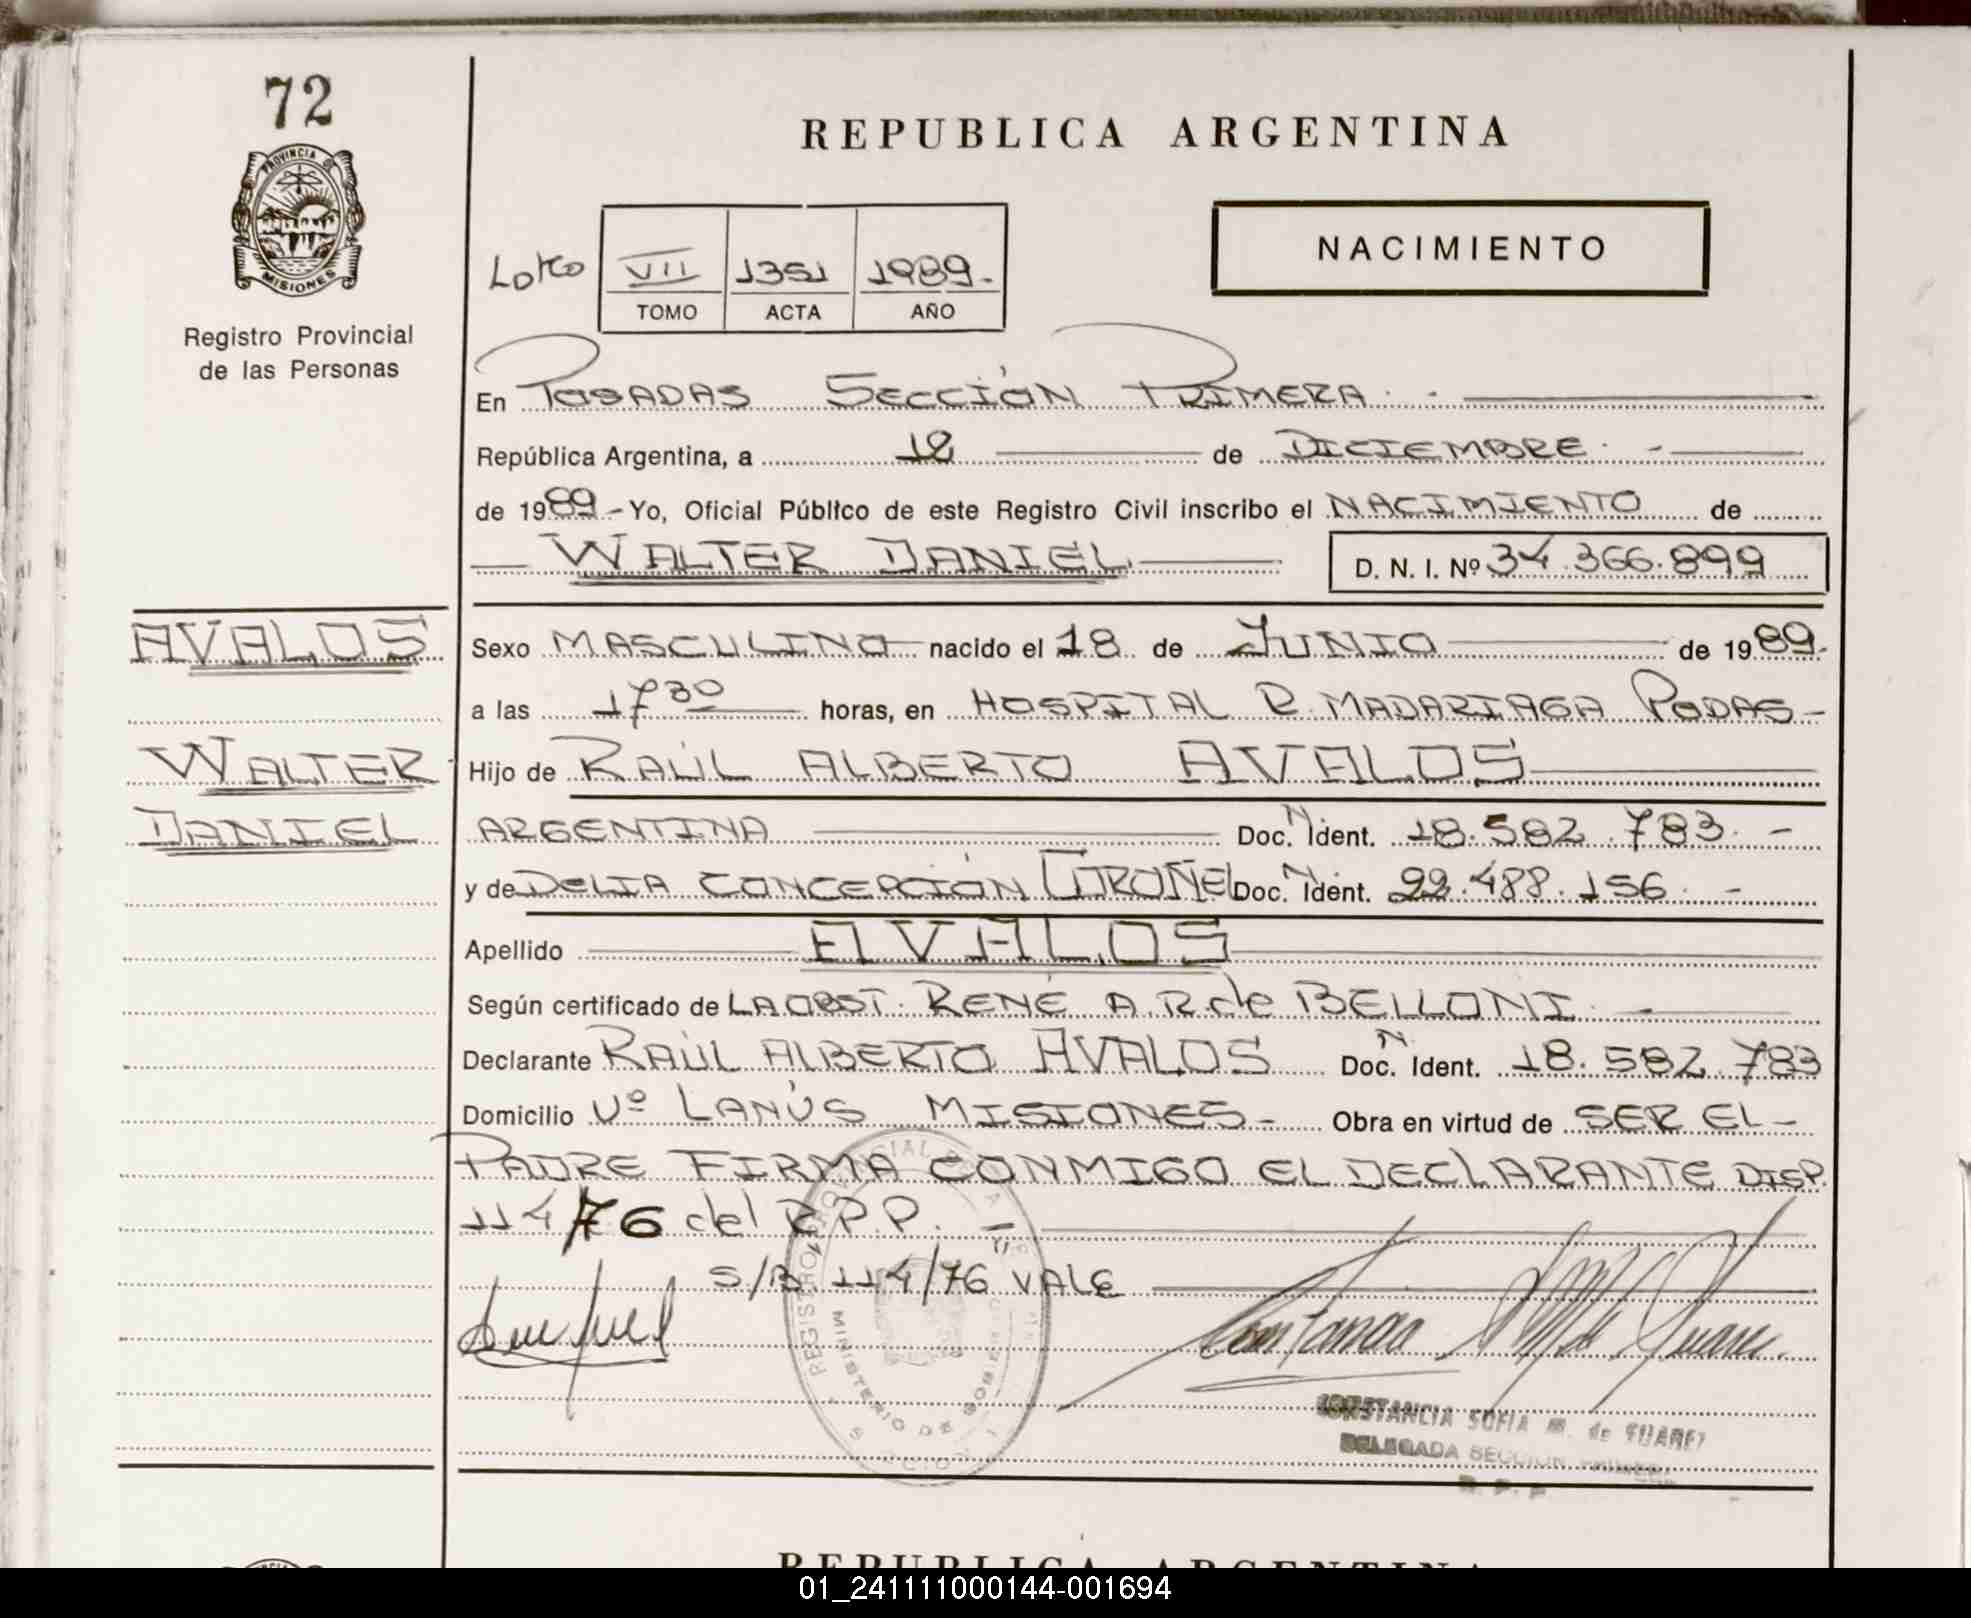 72
PROVINCIA DE
MISIONES
Registro Provincial
de las Personas
REPUBLICA ARGENTINA
NACIMIENTO
VII 1351 1989.-
TOMO ACTA AÑO
En POSADAS SECCIÓN PRIMERA. -
República Argentina, a 12 de DICIEMBRE. -
de 1989.- Yo, Oficial Público de este Registro Civil inscribo el NACIMIENTO de
WALTER DANIEL D. N. I. Nº 34.366.899
AVALOS
WALTER
DANIEL
Sexo MASCULINO nacido el 18 de JUNIO de 1989.-
a las 17 30 horas, en HOSPITAL R. MADARIAGA PODAS-
Hijo de RAÚL ALBERTO AVALOS
ARGENTINA Doc. N Ident. 18.582.783. -
y de DELIA CONCEPCIÓN Doc. N Ident. 22.488.156. -
Apellido AVALOS
Según certificado de LA OBST. RENÉ A. R. de BELLONI. -
Declarante RAÚL ALBERTO AVALOS Doc. N Ident. 18.582.783
Domicilio Vº LANÚS MISIONES- Obra en virtud de SER EL-
PADRE FIRMA CONMIGO EL DECLARANTE DISP.
114/76 del R.P.P. -
S/B 114/76 VALE
REGISTRO PROVINCIAL DE
MINISTERIO DE GOBIERNO
CONSTANCIA SOFIA M. de SUAREZ
DELEGADA SECCION PRIMERA
R. P. P.
REPUBLICA ARGENTINA
01_241111000144-001694